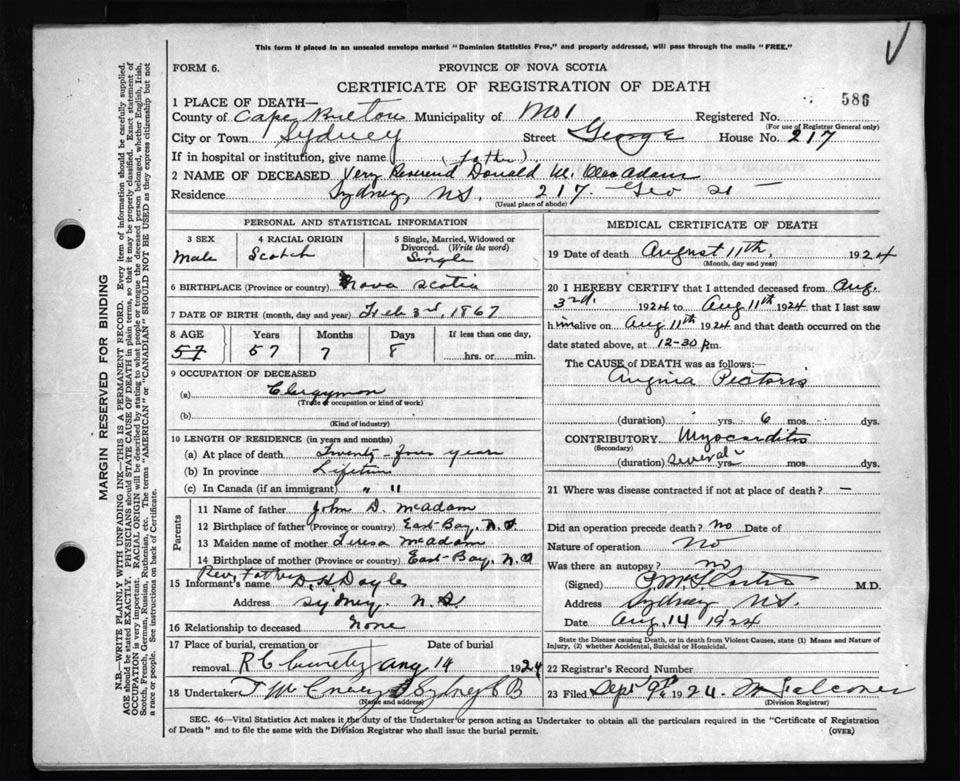 This form if placed in an unsealed envelope marked "Dominion Statistics Free," and properly addressed, will pass through the mails "FREE."
FORM 6.
PROVINCE OF NOVA SCOTIA
CERTIFICATE OF REGISTRATION OF DEATH
586
1 PLACE OF DEATH—
County of Cape Breton Municipality of No 1 Registered No.
(For use of Registrar General only)
City or Town Sydney Street George House No. 217
If in hospital or institution, give name (father)
2 NAME OF DECEASED Very Reverend Donald M. MacAdam
Residence Sydney, N.S. 217. Geo St —
(Usual place of abode)
PERSONAL AND STATISTICAL INFORMATION
3 SEX Male
4 RACIAL ORIGIN Scotch
5 Single, Married, Widowed or Divorced. (Write the word) Single
6 BIRTHPLACE (Province or country) Nova Scotia
7 DATE OF BIRTH (month, day and year) Feb 3rd, 1867
8 AGE Years Months Days If less than one day,
57 57 7 8 hrs. or min.
9 OCCUPATION OF DECEASED
(a) Clergyman
(Trade occupation or kind of work)
(b)
(Kind of industry)
10 LENGTH OF RESIDENCE (in years and months)
(a) At place of death Twenty-four year
(b) In province Lifetime
(c) In Canada (if an immigrant) " "
Parents
11 Name of father John D. McAdam
12 Birthplace of father (Province or country) East Bay, N.S
13 Maiden name of mother Teresa McAdam
14 Birthplace of mother (Province or country) East Bay, N.S
Rev, Father
15 Informant's name D. H Doyle
Address Sydney. N.S.
16 Relationship to deceased None
17 Place of burial, cremation or removal Date of burial
R C Cemetery Aug 14 1924
18 Undertaker Sydney C B
(Name and address)
MEDICAL CERTIFICATE OF DEATH
19 Date of death August 11th, 1924
(Month, day and year)
20 I HEREBY CERTIFY that I attended deceased from Aug.
3rd. 1924 to Aug 11th 1924 that I last saw
him alive on Aug 11th 1924 and that death occurred on the
date stated above, at 12-30 p.m.
The CAUSE OF DEATH was as follows:—
Angina Pectoris
(duration) yrs. 6 mos. dys.
CONTRIBUTORY Myocarditis
(Secondary)
(duration) several yrs. mos. dys.
21 Where was disease contracted if not at place of death? —
Did an operation precede death? no Date of
Nature of operation No
Was there an autopsy? no
(Signed) M.D.
Address Sydney N.S.
Date Aug 14 1924
State the Disease causing Death, or in death from Violent Causes, state (1) Means and Nature of
Injury, (2) whether Accidental, Suicidal or Homicidal.
22 Registrar's Record Number
23 Filed Sept 9th 1924. M Falconer
(Division Registrar)
SEC. 46—Vital Statistics Act makes it the duty of the Undertaker or person acting as Undertaker to obtain all the particulars required in the "Certificate of Registration
of Death" and to file the same with the Division Registrar who shall issue the burial permit.
(OVER)
MARGIN RESERVED FOR BINDING
N.B.—WRITE PLAINLY WITH UNFADING INK—THIS IS A PERMANENT RECORD. Every item of information should be carefully supplied.
AGE should be stated EXACTLY. PHYSICIANS should STATE CAUSE OF DEATH in plain terms, so that it may be properly classified. Exact statement of
OCCUPATION is very important. RACIAL ORIGIN will be described by stating to what people or tongue the deceased person belonged, whether English, Irish,
Scotch, French, German, Russian, Ruthenian, etc. The terms "AMERICAN" or "CANADIAN" SHOULD NOT BE USED as they express citizenship but not
a race or people. See instructions on back of Certificate.